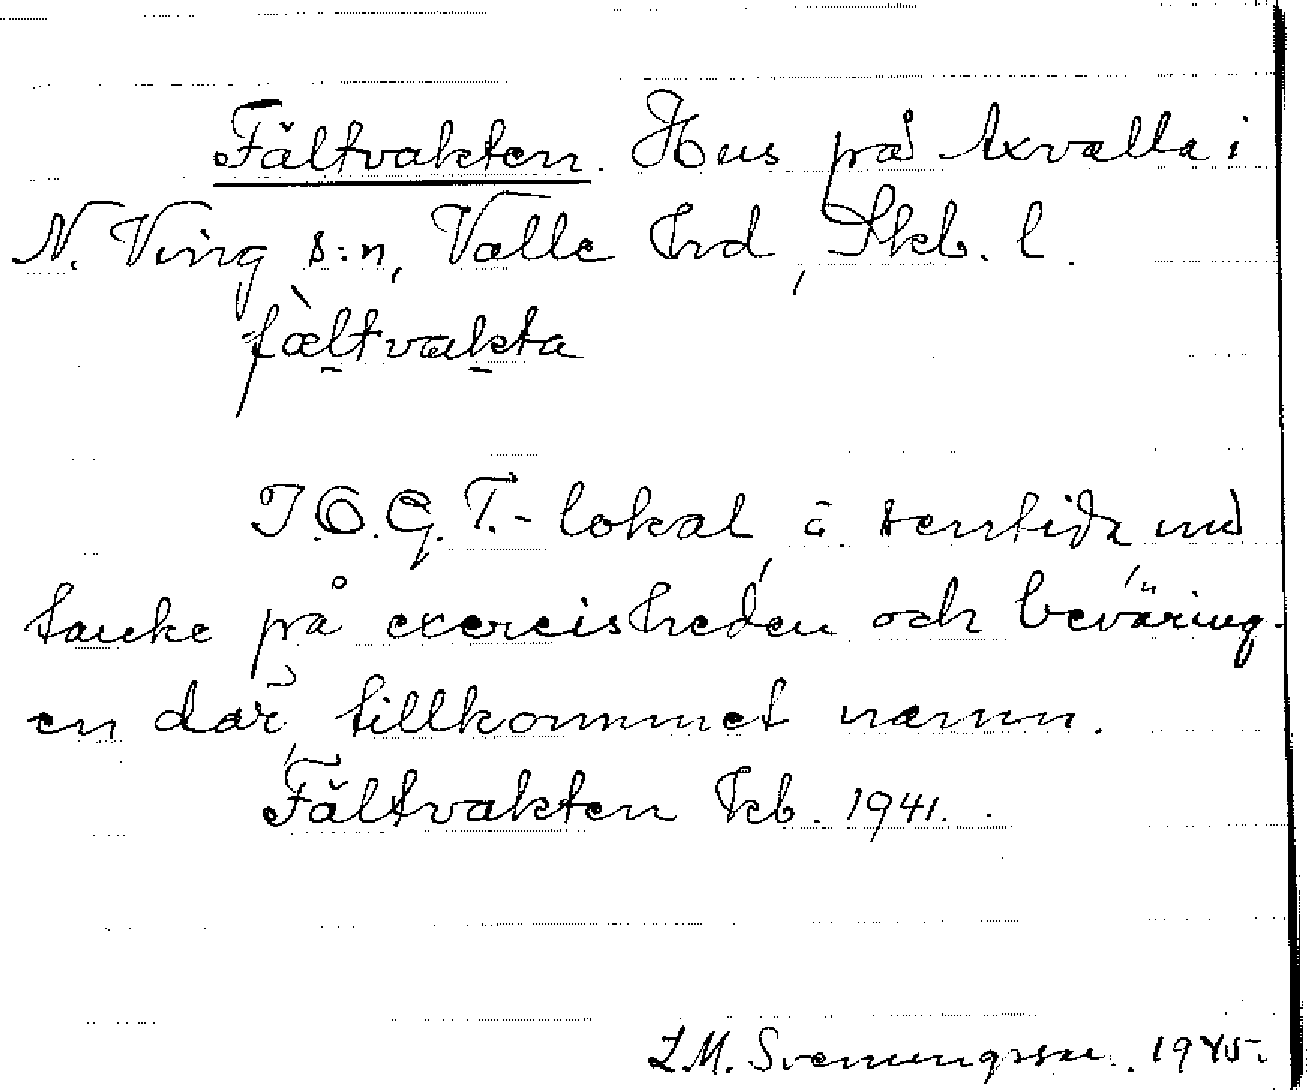 Fältvakten. Hus på Axvalla i
N. Ving s:n, Valle hd, Skb. l.
fæ̀ltvakta
I.O.G.T.-lokal, i sentida med
tanke på exercisheden och beväring-
en där, tillkommet namn.
Fältvakten Tkb. 1941.
L.M. Svenungsson. 1945.